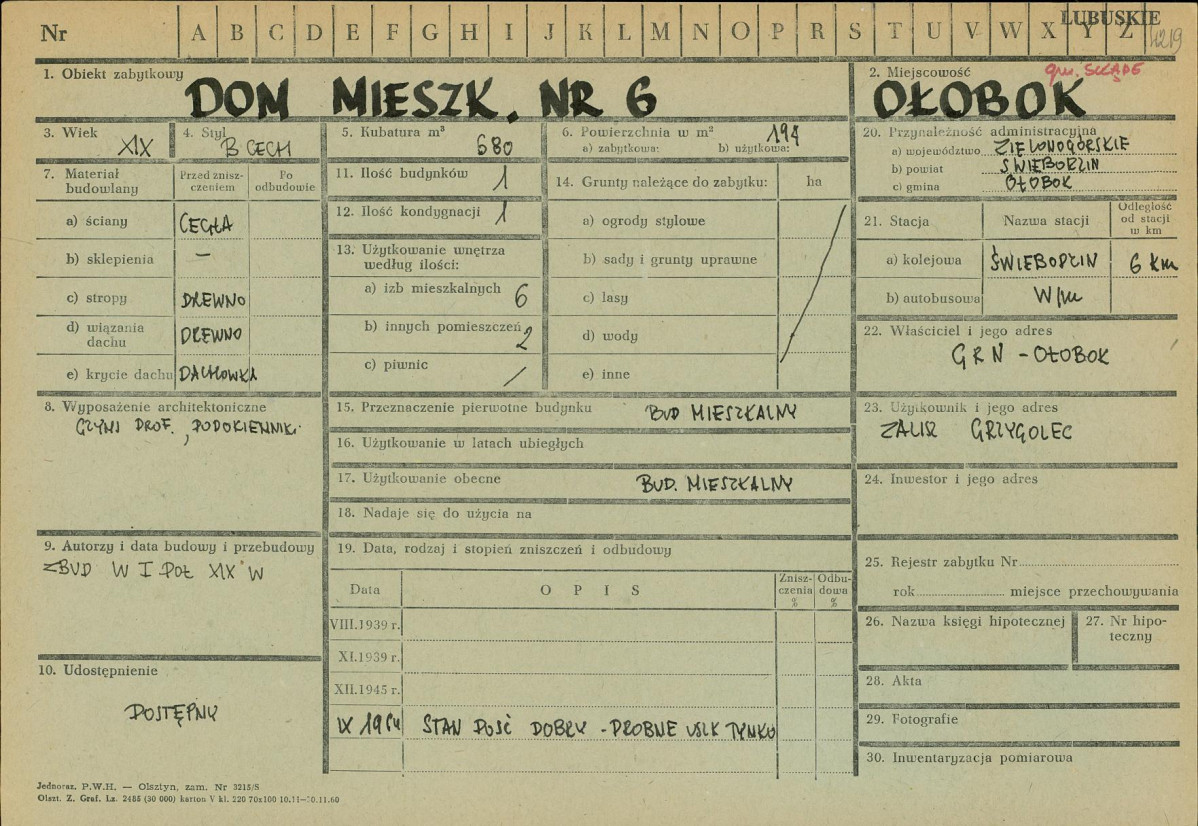 Nr A B C D E F G H I J K L M N O P R S T U V W X Y Z
LUBUSKIE
4219
1. Obiekt zabytkowy
DOM MIESZK. NR 6
2. Miejscowość
gm. SKĄPE
OŁOBOK
3. Wiek
XIX
4. Styl
B CECH
5. Kubatura m³
680
6. Powierzchnia w m²
194
a) zabytkowa: b) użytkowa:
20. Przynależność administracyjna
a) województwo ZIELONOGÓRSKIE
b) powiat ŚWIEBODZIN
c) gmina OŁOBOK
7. Materiał budowlany
Przed zniszczeniem
Po odbudowie
a) ściany CEGŁA
b) sklepienia —
c) stropy DREWNO
d) wiązania dachu DREWNO
e) krycie dachu DACHÓWKA
11. Ilość budynków 1
12. Ilość kondygnacji 1
13. Użytkowanie wnętrza
według ilości:
a) izb mieszkalnych 6
b) innych pomieszczeń 2
c) piwnic /
14. Grunty należące do zabytku: ha
a) ogrody stylowe
b) sady i grunty uprawne
c) lasy
d) wody
e) inne
21. Stacja
Nazwa stacji
Odległość
od stacji
w km
a) kolejowa ŚWIEBODZIN 6 km
b) autobusowa W/m
22. Właściciel i jego adres
GRN - OŁOBOK
8. Wyposażenie architektoniczne
GZYMS PROF., PODOKIENNIKI
15. Przeznaczenie pierwotne budynku BUD MIESZKALNY
16. Użytkowanie w latach ubiegłych
17. Użytkowanie obecne BUD. MIESZKALNY
18. Nadaje się do użycia na
23. Użytkownik i jego adres
GRZYGOLEC
24. Inwestor i jego adres
9. Autorzy i data budowy i przebudowy
ZBUD W I POŁ XIX W
19. Data, rodzaj i stopień zniszczeń i odbudowy
Data
O P I S
Zniszczenia
%
Odbudowa
%
VIII.1939 r.
XI.1939 r.
XII.1945 r.
IX 1964 STAN DOŚĆ DOBRY - DROBNE USZK TYNKU
25. Rejestr zabytku Nr
rok miejsce przechowywania
26. Nazwa księgi hipotecznej
27. Nr hipoteczny
28. Akta
29. Fotografie
30. Inwentaryzacja pomiarowa
10. Udostępnienie
DOSTĘPNY
Jednoraz. P.W.H. — Olsztyn, zam. Nr 3215/S
Olszt. Z. Graf. Lz. 2485 (30 000) karton V kl. 220 70x100 10.11—10.11.60